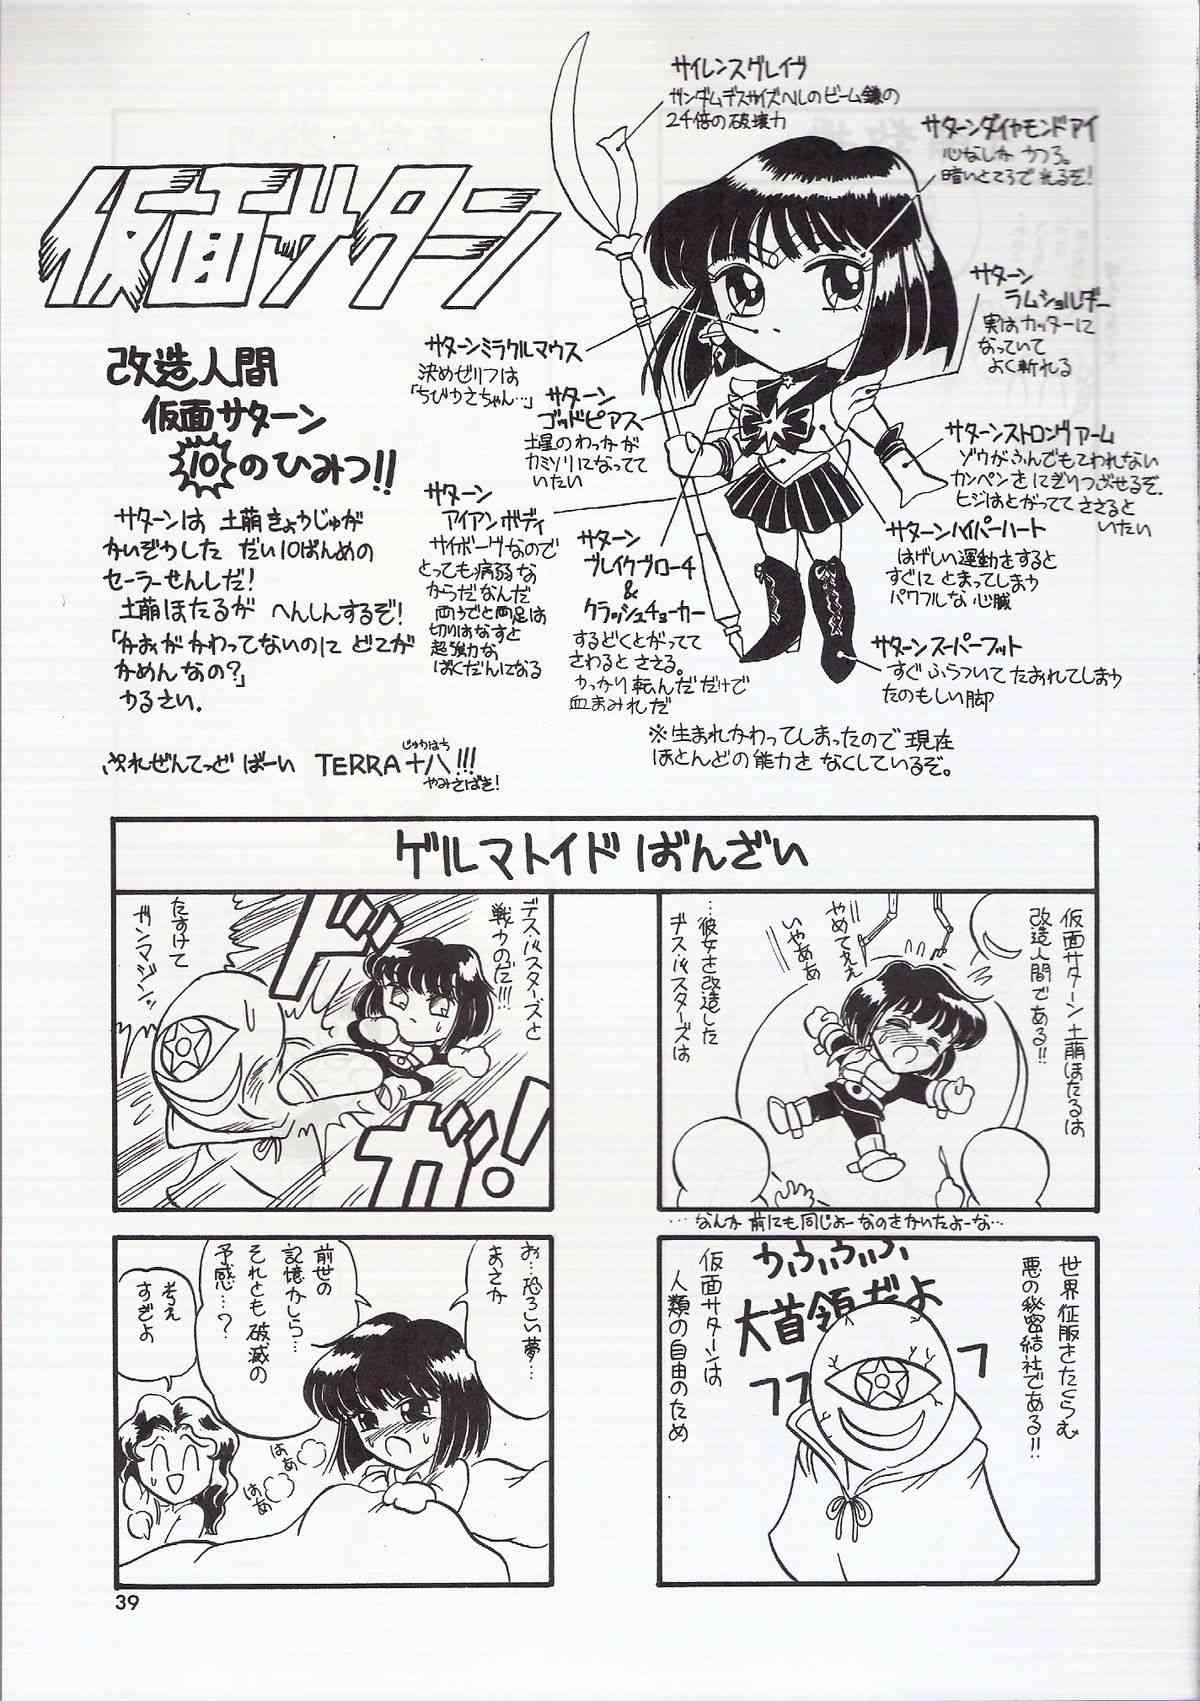 仮面サターン
改造人間
仮面サターン
10のひみつ!!
サターンは 土萌きょうじゅが
かいぞうした だい10ばんめの
セーラーせんしだ!
土萌ほたるが へんしんするぞ!
「かおがかわってないのに どこが
かめんなの?」
うるさい.
ぷれぜんてっど ばーい TERRA十八!!!
じゅうはち
やみさばき!
サイレンスグレイヴ
ガンダムデスサイズヘルのビーム鎌の
24倍の破壊力
サターンダイヤモンドアイ
心なしか うつろ。
暗いところで光るぞ!
サターン
ラムショルダー
実はカッターに
なっていて
よく斬れる
サターンミラクルマウス
決めゼリフは
「ちびうさちゃん…」
サターン
ゴッドピアス
土星のわっかが
カミソリになってて
いたい
サターンストロングアーム
ゾウがふんでもこわれない
カンペンをにぎりつぶせるぞ.
ヒジはとがってて ささると
いたい
サターン
アイアンボディ
サイボーグなので
とっても病弱な
からだなんだ
両うでと両足は
切りはなすと
超強力な
ばくだんになる
サターン
ブレイクブローチ
&
クラッシュチョーカー
するどくとがってて
さわると ささる。
うっかり転んだだけで
血まみれだ
サターンハイパーハート
はげしい運動をすると
すぐに とまってしまう
パワフルな 心臓
サターンスーパーフット
すぐ ふらついて たおれてしまう
たのもしい脚
※生まれかわってしまったので 現在
ほとんどの能力を なくしているぞ。
ゲルマトイド ばんざい
仮面サターン 土萌ほたるは
改造人間である!!
やめてえぇ
いやああ
…彼女を改造した
デス・バスターズは
…なんか 前にも同じよーなのをかいたよーな…
世界征服をたくらむ
悪の秘密結社である!!
うふふふふ
大首領だよ
フ
フフ
仮面サターンは
人類の自由のため
デス・バスターズと
戦うのだ!!!
ドガ!
たすけて
ガンマジン。
お…恐ろしい夢…
まさか
前世の
記憶かしら…
それとも 破滅の
予感…?
はぁ
はぁ
考え
すぎよ
39